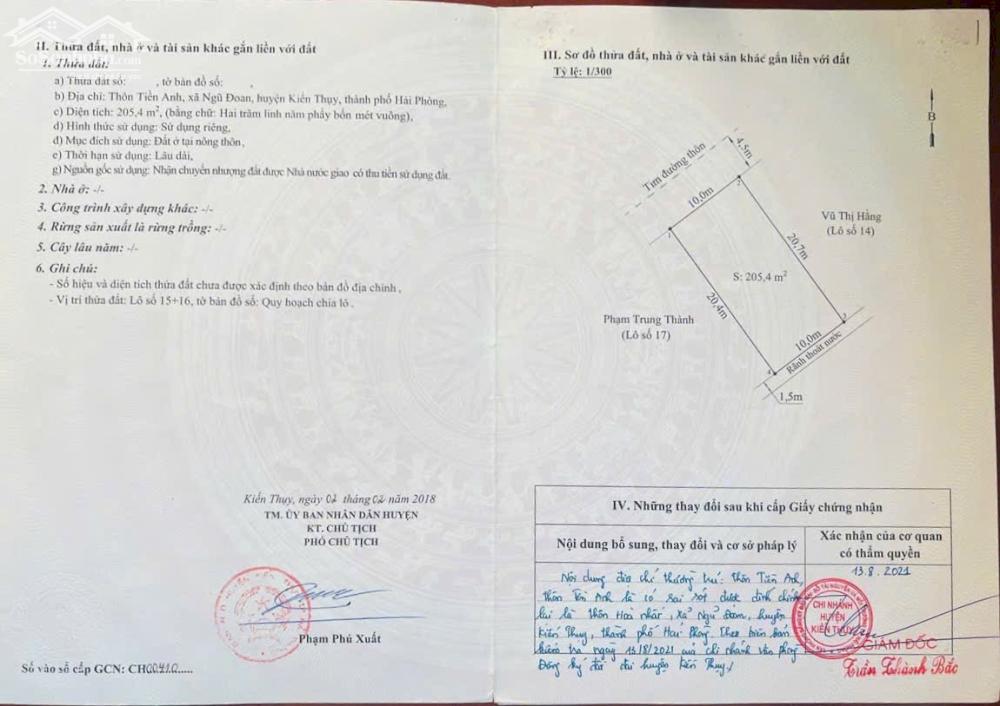 II. Thửa đất, nhà ở và tài sản khác gắn liền với đất
1. Thửa đất:
a) Thửa đất số: , tờ bản đồ số: ,
b) Địa chỉ: Thôn Tiền Anh, xã Ngũ Đoan, huyện Kiến Thụy, thành phố Hải Phòng,
c) Diện tích: 205,4 m², (bằng chữ: Hai trăm linh năm phẩy bốn mét vuông),
d) Hình thức sử dụng: Sử dụng riêng,
đ) Mục đích sử dụng: Đất ở tại nông thôn,
e) Thời hạn sử dụng: Lâu dài,
g) Nguồn gốc sử dụng: Nhận chuyển nhượng đất được Nhà nước giao có thu tiền sử dụng đất.
2. Nhà ở: -/-
3. Công trình xây dựng khác: -/-
4. Rừng sản xuất là rừng trồng: -/-
5. Cây lâu năm: -/-
6. Ghi chú:
- Số hiệu và diện tích thửa đất chưa được xác định theo bản đồ địa chính,
- Vị trí thửa đất: Lô số 15+16, tờ bản đồ số: Quy hoạch chia lô.
Kiến Thụy, ngày 02 tháng 02 năm 2018
TM. ỦY BAN NHÂN DÂN HUYỆN
KT. CHỦ TỊCH
PHÓ CHỦ TỊCH
Phạm Phú Xuất
Số vào sổ cấp GCN: CH00410.....
III. Sơ đồ thửa đất, nhà ở và tài sản khác gắn liền với đất
Tỷ lệ: 1/300
B
4,5m
Tim đường thôn
10,0m
2
1
Vũ Thị Hằng
(Lô số 14)
20,7m
S: 205,4 m²
20,4m
Phạm Trung Thành
(Lô số 17)
3
10,0m
Rãnh thoát nước
4
1,5m
IV. Những thay đổi sau khi cấp Giấy chứng nhận
Nội dung bổ sung, thay đổi và cơ sở pháp lý
Xác nhận của cơ quan
có thẩm quyền
Nội dung địa chỉ thường trú: Thôn Tiền Anh,
thôn Tiền Anh là có sai sót được đính chính
lại là thôn Hoà nhất, xã Ngũ Đoan, huyện
Kiến Thụy, thành phố Hải Phòng. Theo biên bản
kiểm tra ngày 13/8/2021 của chi nhánh văn phòng
Đăng ký đất đai huyện Kiến Thụy./
13.8.2021
CHI NHÁNH
HUYỆN
KIẾN THỤY
GIÁM ĐỐC
Trần Thành Bắc